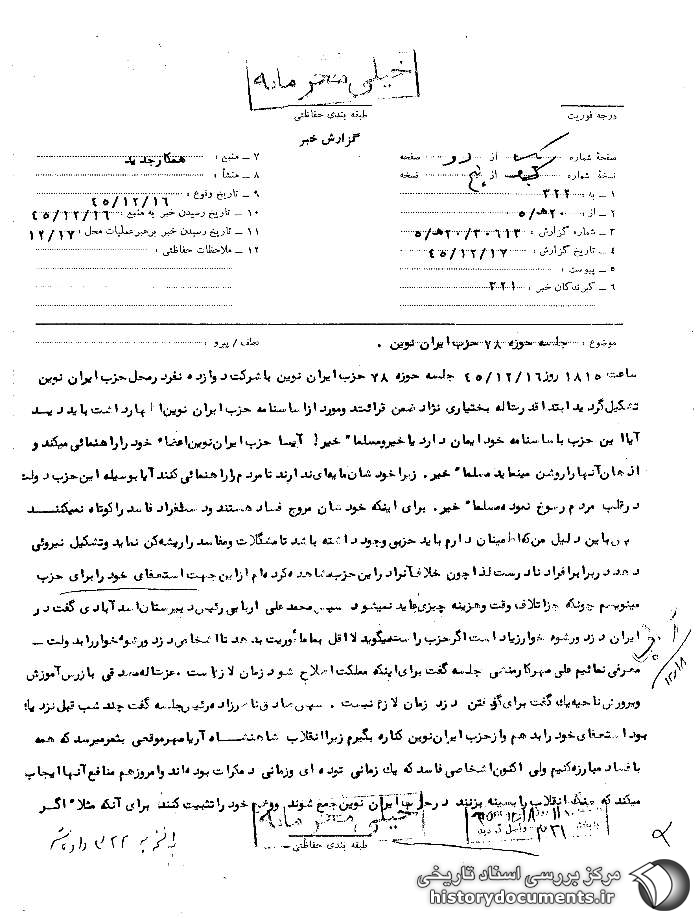 خیلی محرمانه
طبقه بندی حفاظتی
درجه فوریت
گزارش خبر
صفحه شماره یک از دو صفحه
نسخه شماره یک از پنج نسخه
۱ – به : ۳۲۲
۲ – از : ۲۰هـ/۵
۳ – شماره گزارش : ۳۰۶۱۳/۲۰هـ/۵
۴ – تاریخ گزارش : ۴۵/۱۲/۱۷
۵ – پیوست :
۶ – گیرندگان خبر : ۲۲۱
۷ – منبع : همکار جدید
۸ – منشأ :
۹ – تاریخ وقوع : ۴۵/۱۲/۱۶
۱۰ – تاریخ رسیدن خبر به منبع : ۴۵/۱۲/۱۶
۱۱ – تاریخ رسیدن خبر برهبر عملیات محل : ۱۲/۱۷
۱۲ – ملاحظات حفاظتی :
موضوع : جلسه حوزه ۷۸ حزب ایران نوین .
عطف / پیرو :
ساعت ۱۸۱۵ روز ۴۵/۱۲/۱۶ جلسه حوزه ۷۸ حزب ایران نوین با شرکت دوازده نفر در محل حزب ایران نوین
تشکیل گردید ابتدا قدرت‌اله بختیاری نژاد ضمن قرائت دو مورد از اساسنامه حزب ایران نوین اظهار داشت باید دید
آیا این حزب با ساسنامه خود ایمان دارد یا خیر و مسلما" خیر ! آیا حزب ایران نوین اعضاء خود را راهنمائی میکند و
اذهان آنها را روشن مینماید مسلما" خیر . زیرا خودشان مایه‌ای ندارند تا مردم را راهنمائی کنند آیا بوسیله این حزب دولت
در قلب مردم رسوخ نموده مسلما" خیر . برای اینکه خودشان مروج فساد هستند و دست افراد فاسد را کوتاه نمیکنند
پس باین دلیل من که اطمینان دارم باید حزبی وجود داشته باشد تا مشکلات و مفاسد را ریشه کن نماید و تشکیل نیروئی
دهد در برابر افراد نادرست لذا چون خلاف آنرا در این حزب مشاهده کرده‌ام از این جهت استعفای خود را برای حزب
مینویسم چونکه جز اتلاف وقت و هزینه چیزی عاید نمیشود سپس محمدعلی اربابی رئیس دبیرستان اسدآبادی گفت در
ایران دزد و رشوه خوار زیاد است اگر حزب راست میگوید لااقل بماها مأموریت بدهد تا اشخاص دزد و رشوه خوار را بدولت –
معرفی نمائیم علی مهرکار منشی جلسه گفت برای اینکه مملکت اصلاح شود زمان لازم است . عزت‌اله مصدقی بازرس آموزش
و پرورش ناحیه یک گفت برای گرفتن دزد زمان لازم نیست . سپس صادق ناصرزاده رئیس جلسه گفت چند شب قبل نزدیک
بود استعفای خود را بدهم و از حزب ایران نوین کناره بگیرم زیرا انقلاب شاهنشاه آریامهر موقعی بثمر میرسد که همه
با فساد مبارزه کنیم ولی اکنون اشخاصی فاسد که یک زمانی توده‌ای و زمانی دمکرات بوده‌اند و امروز هم منافع آنها ایجاب
میکند که سنگ انقلاب را بسینه بزنند در حزب ایران نوین جمع شوند و وضع خود را تثبیت کنند برای آنکه مثلا" اگر
خیلی محرمانه
طبقه بندی حفاظتی
مرکز بررسی اسناد تاریخی
historydocuments.ir